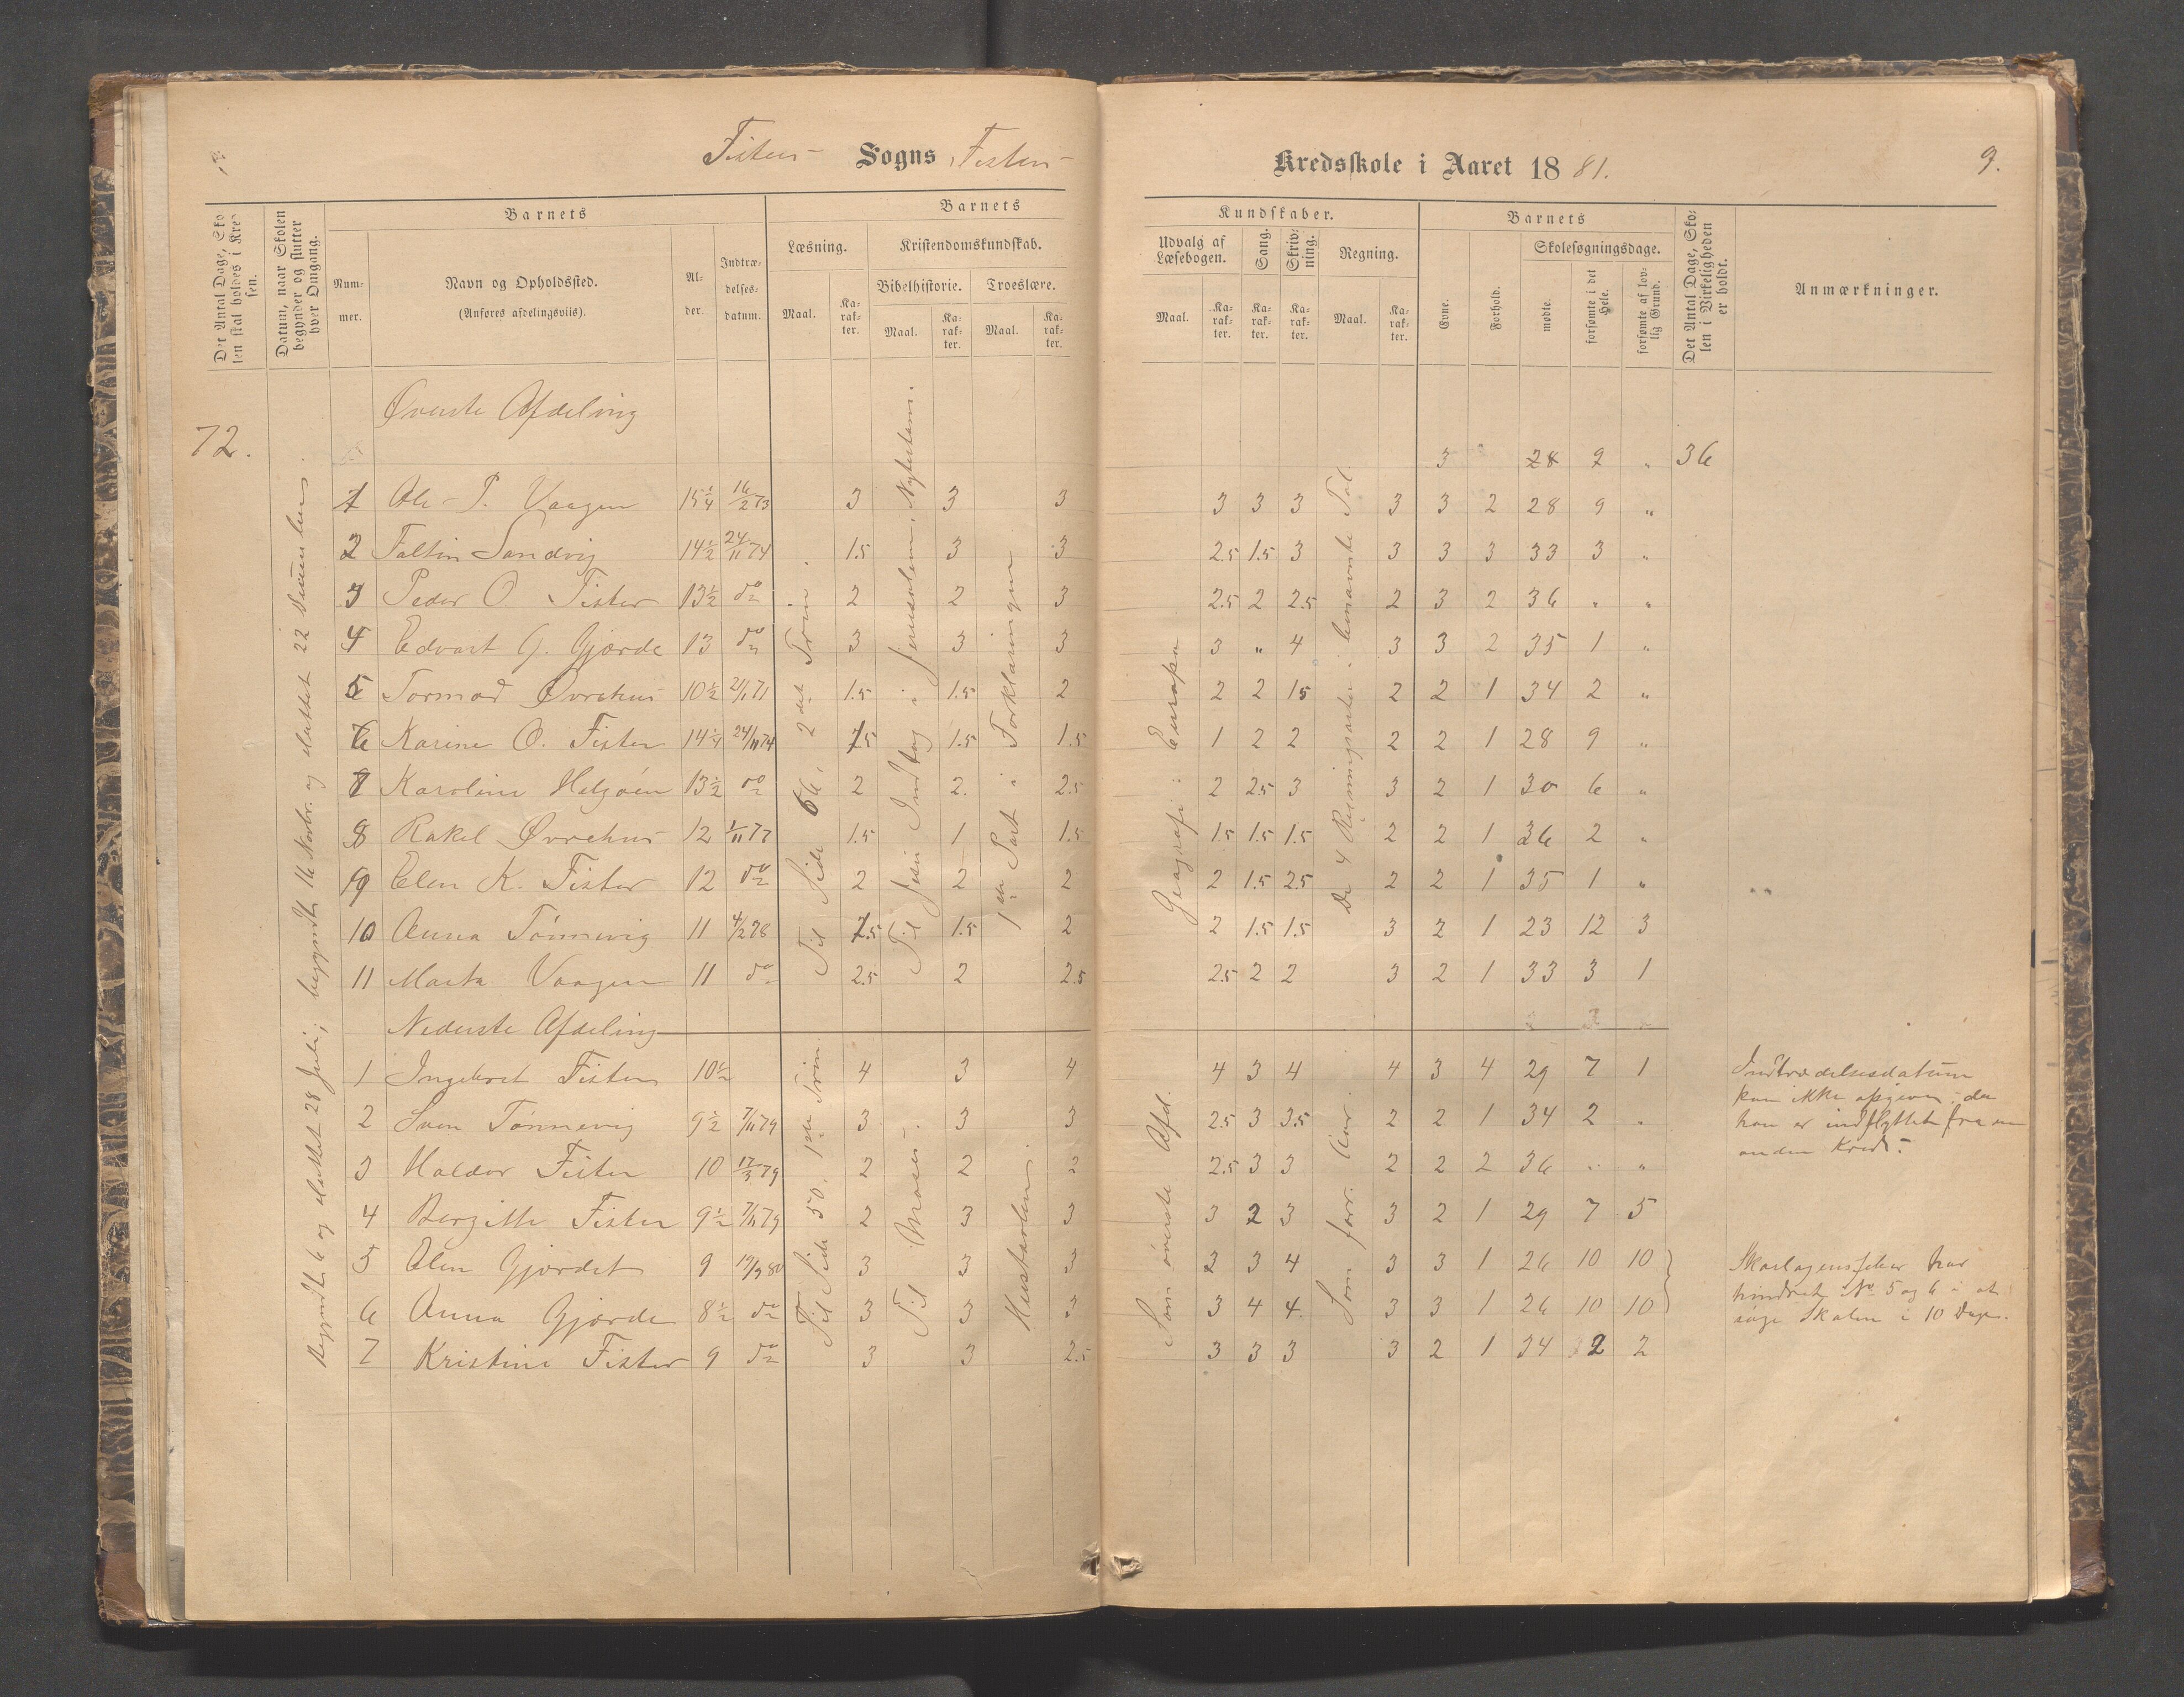 Fister- Sogns Fister- Kredsskole i Aaret 1881. 9.
Det Antal Dage, Skolen skal holdes i Kredsen.
Datum, naar Skolen begynder og slutter hver Omgang.
Barnets
Nummer.
Navn og Opholdssted.
(Anføres afdelingsviis).
Alder
Indtrædelsesdatum.
Barnets Kundskaber.
Læsning.
Kristendomskundskab.
Bibelhistorie.
Troeslære.
Maal. Karakter. Maal. Karakter. Maal. Karakter.
Udvalg af Læsebogen.
Sang.
Skrivning.
Regning.
Maal. Karakter. Karakter. Karakter. Maal. Karakter.
Barnets
Evne.
Forhold.
Skolesøgningsdage.
mødte.
forsømte i det Hele.
forsømte af lovlig Grund.
Det Antal Dage, Skolen i Virkeligheden er holdt.
Anmærkninger.
72.
Begyndt 6 og sluttet 28 Juli; begyndt 16 Novbr. og sluttet 22 December.
Øverste Afdeling
3 28 9 " 36
1 Ole P. Vaagen 15 1/4 16/2 73 3 3 3 3 3 3 3 3 2 28 9 "
2 Faltin Sandvig 14 1/2 24/11 74 1.5 3 3 2.5 1.5 3 3 3 3 33 3 "
3 Peder O Fister 13 1/2 do 2 2 3 2.5 2 2.5 2 3 2 36 " "
4 Edvart G. Gjørde 13 do 3 3 3 3 " 4 3 3 2 35 1 "
5 Tormod Øvrehus 10 1/2 2/1 71 1.5 1.5 2 2 2 15 2 2 1 34 2 "
6 Karine O. Fister 14 1/4 24/11 74 1.5 1.5 1.5 1 2 2 2 2 1 28 9 "
7 Karoline Helgøen 13 1/2 do 2 2. 2.5 2 2.5 3 3 2 1 30 6 "
8 Rakel Øvrehus 12 1/11 77 1.5 1 1.5 1.5 1.5 1.5 2 2 1 36 2 "
9 Elen K. Fister 12 do 2 2 2 2 1.5 2.5 2 2 1 35 1 "
10 Anna Tønnevig 11 4/2 78 1.5 1.5 2 2 1.5 1.5 3 2 1 23 12 3
11 Marta Vaagen 11 do 2.5 2 2.5 2.5 2 2 3 2 1 33 3 1
Til Side 66, 2det Trin.
Til Jesu Indtog i Jerusalem, Nytestam.
1ste Part i Forklaringen
Geografi: Europa
De 4 Regningsarter i benævnte Tal.
Nederste Afdeling
1 Ingebret Fister 10 1/2 4 3 4 4 3 4 4 3 4 29 7 1
2 Sven Tønnevig 9 1/2 7/11 79 3 3 3 2.5 3 3.5 2 2 1 34 2 "
3 Haldor Fister 10 17/3 79 2 2 2 2.5 3 3 2 2 2 36 " "
4 Bergitte Fister 9 1/2 7/11 79 2 3 3 3 2 3 3 2 1 29 7 5
5 Elen Gjørdet 9 19/9 80 3 3 3 3 3 4 3 3 1 26 10 10
6 Anna Gjørde 8 1/2 do 3 3 3 3 4 4 3 3 1 26 10 10
7 Kristine Fister 9 do 3 3 2.5 3 3 3 3 2 1 34 2 2
Til Side 50, 1ste Trin.
Til Moses.
Husterlen.
Som øverste Afd.
Som forr. Aar.
Indtrædelsesdatum
kan ikke opgives, da
han er indflyttet fra en
anden Kreds.
Skarlagensfeber har
hindret No 5 og 6 i at
søge Skolen i 10 Dage.